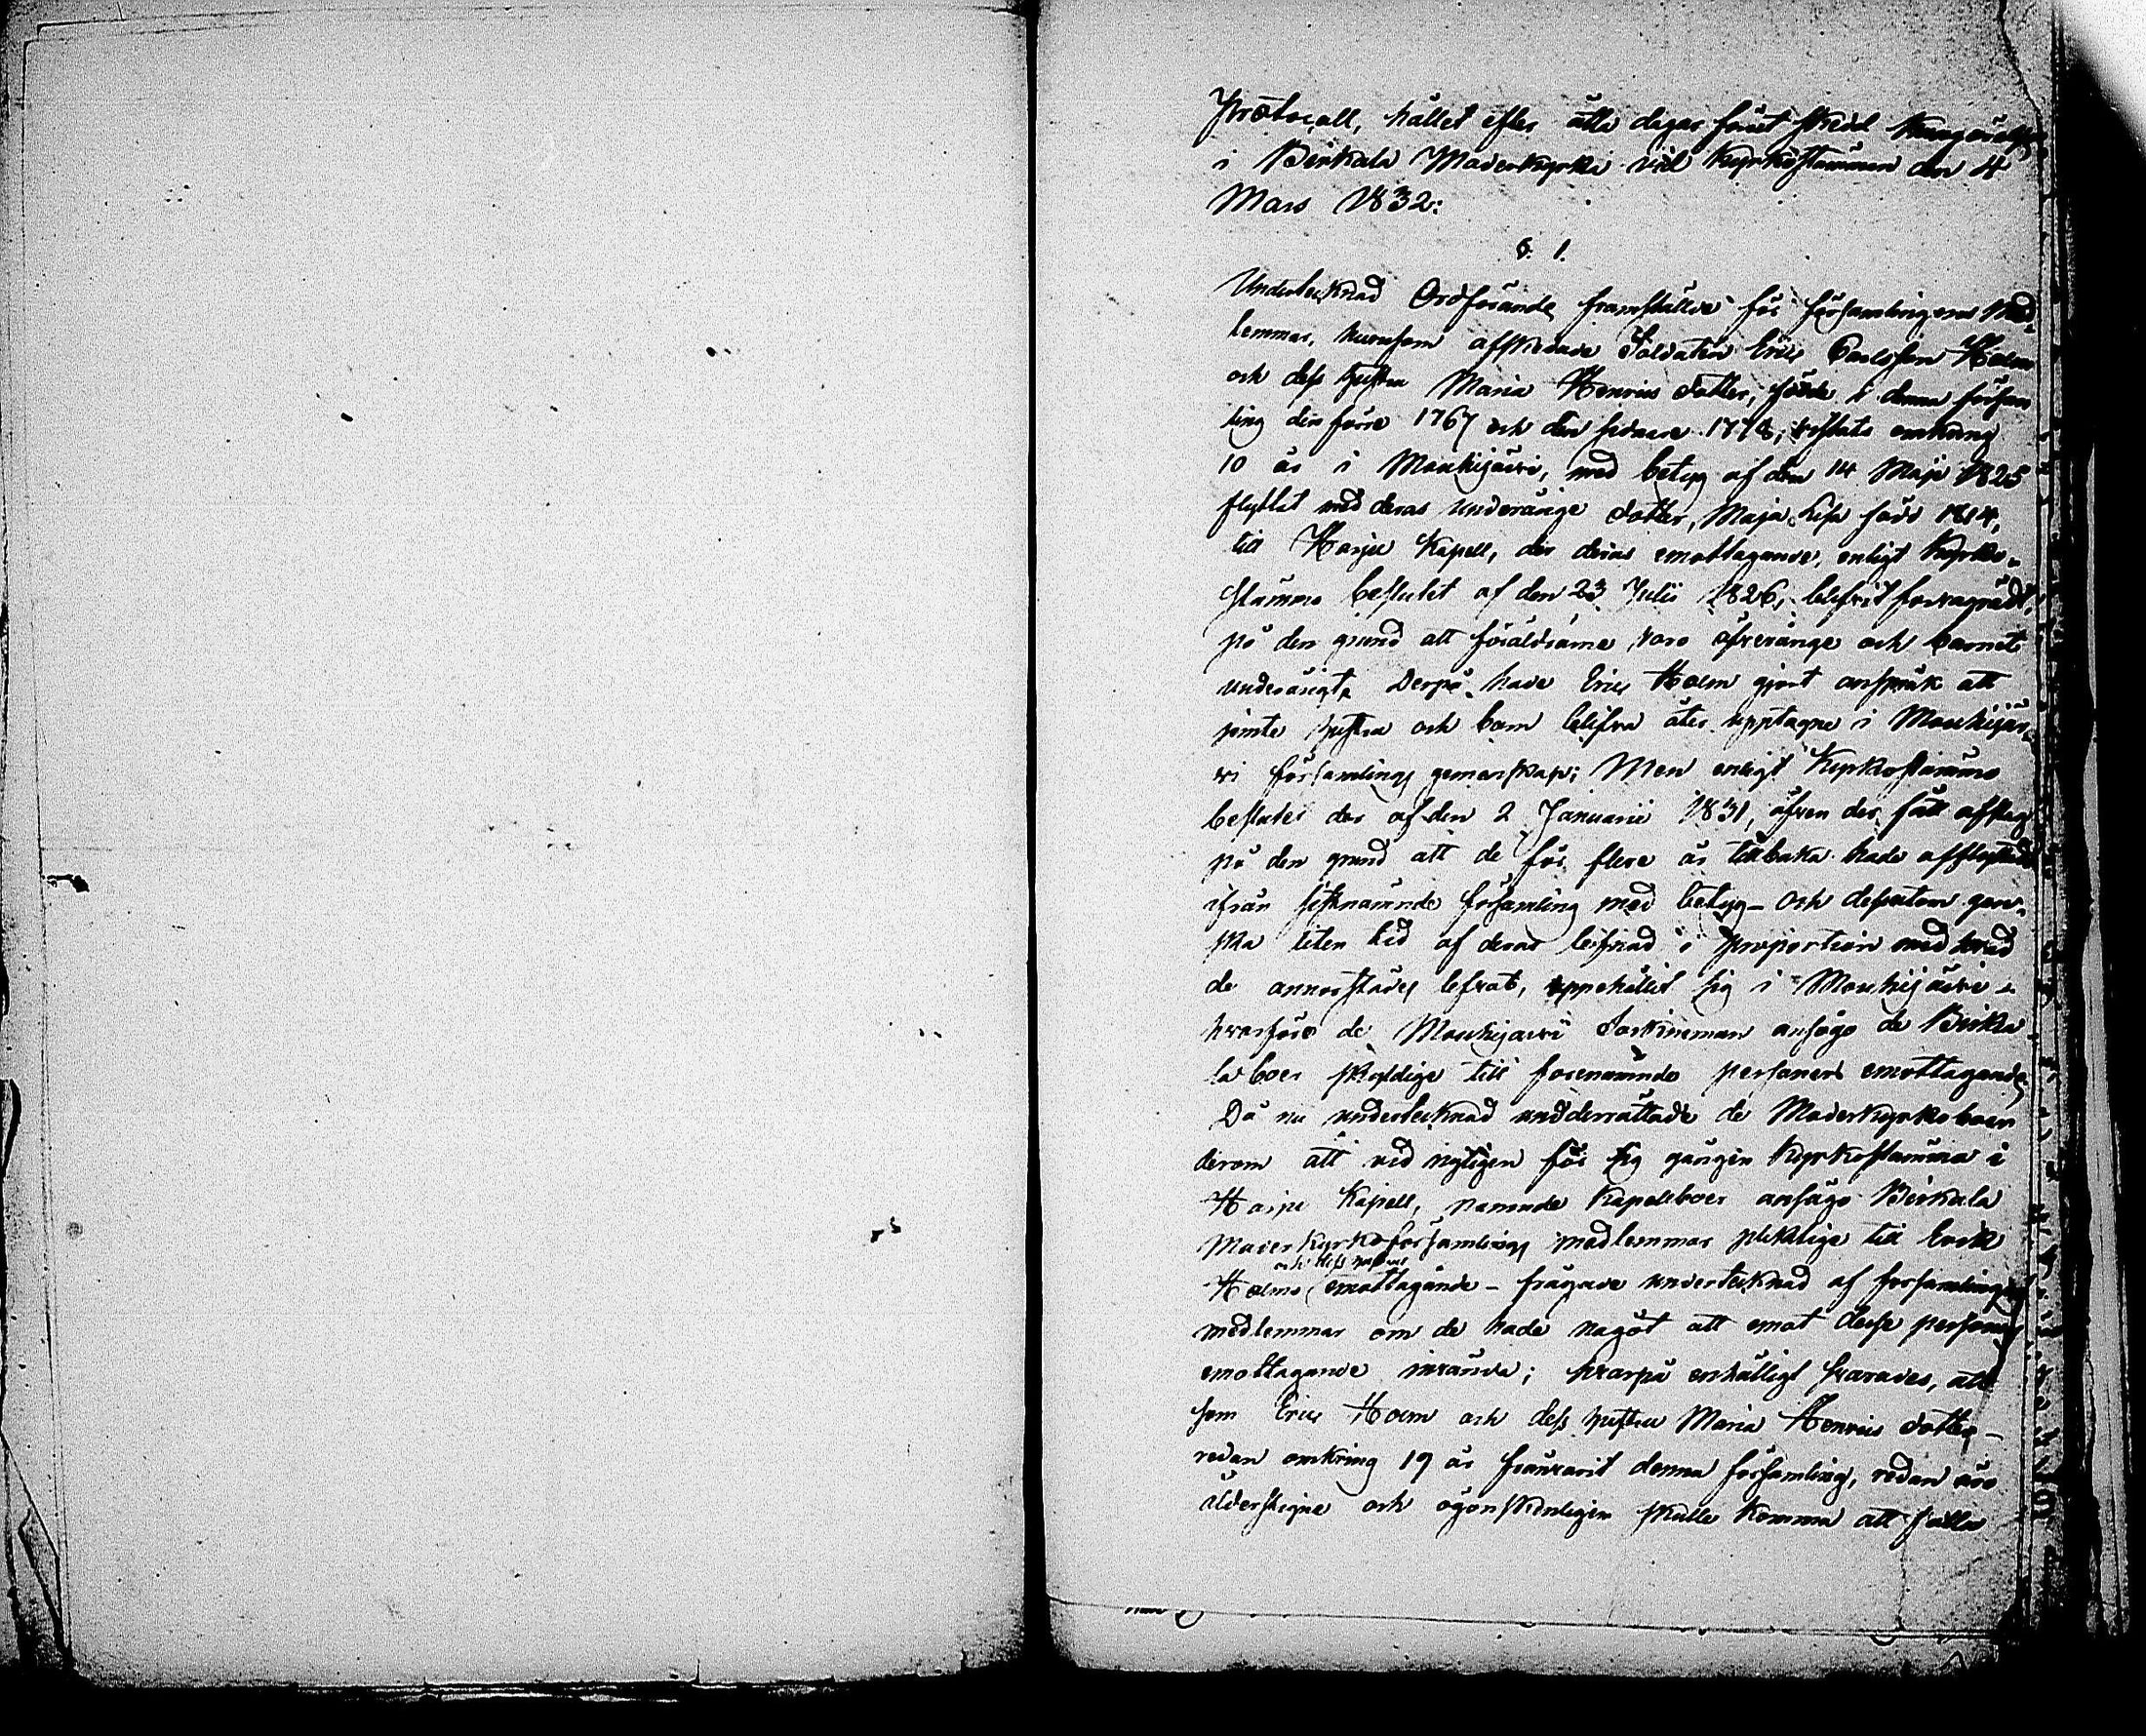 Protocoll, hållet efter åtta dagar förut skedd Kungörelse
i Birkala Moderkyrka vid Kyrkostämman den 4
Mars 1832:
§. 1.
Undertecknad Ordförande framställde för församlingens Med-
lemmar, hurusom afskedade Soldaten Eric Carlsson Holm
och dess hustru Maria Henrics dotter, födde i denna försam
ling den förre 1767 och den sednare 1778, vistats omkring
10 år i Mouhijärvi, med betyg af den 14 Maji 1825
flyttat med deras underårige dotter, Maja Lisa född 1814,
till Harju Kapell, der deras emottagande, enligt Kyrko-
stämmo beslutet af den 23 Julii 1826, blifvit förvägradt,
på den grund att föräldrarne voro öfverårige och barnet
underårigt. Derpå hade Eric Holm gjort anspråk att
jämte hustru och barn blifva åter upptagne i Mouhijär-
vi församlings gemenskap; Men enligt Kyrkostämmo
beslutet der af den 2 Januarii 1831, äfven der fått afslag
på den grund att de för flere år tillbaka hade afflyttadt
ifrån sistnämnde församling med betyg – och dessutom gan-
ska liten tid af deras lefnad i proportion med hvad
de annorstädes lefvat, uppehållit sig i Mouhijärvi –
hvarföre de Mouhijärvi Sockneman ansågo de Birka
la boer skyldige till förenämnde personers emottagande
Då nu undertecknad underrättade de Moderkyrko boer
derom att vid nyligen för sig gången Kyrkostämma i
Harju Kapell, nämnde Kapellboer ansågo Birkala
Moderkyrkoförsamlings medlemmar pliktige till Erik
och dess hustrus
Holms emottagande – frågade undertecknad af församlingens
medlemmar om de hade något att emot desse personers
emottagande invända; hvarpå enhälligt svarades, att
som Eric Holm och dess hustru Maria Henrics dotter –
redan omkring 19 år frånvarit denna församling, redan äro
ålderstigne och ögonskenligen skulle komma att falla